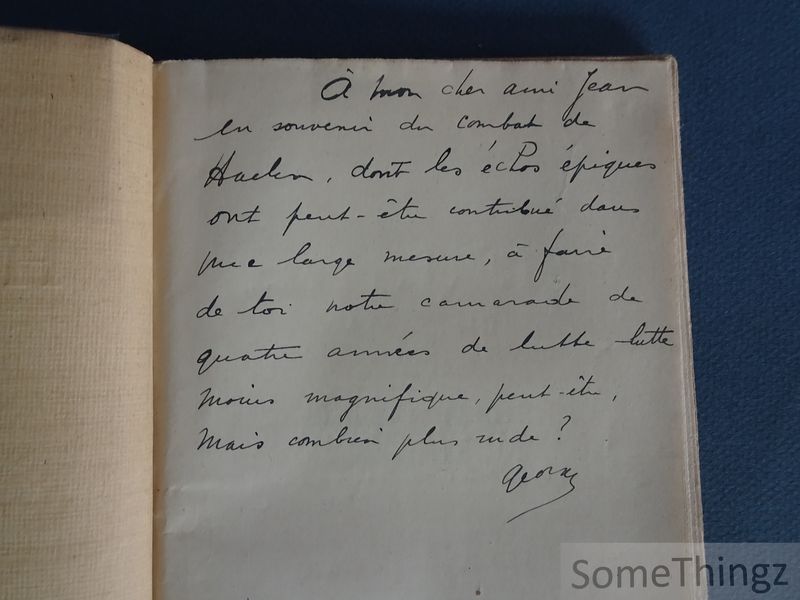 À mon cher ami Jean
en souvenir du combat de
Haelen, dont les échos épiques
ont peut-être contribué dans
une large mesure, à faire
de toi notre camarade de
quatre années de lutte - lutte
moins magnifique, peut-être,
mais combien plus rude ?
Georges
SomeThingz